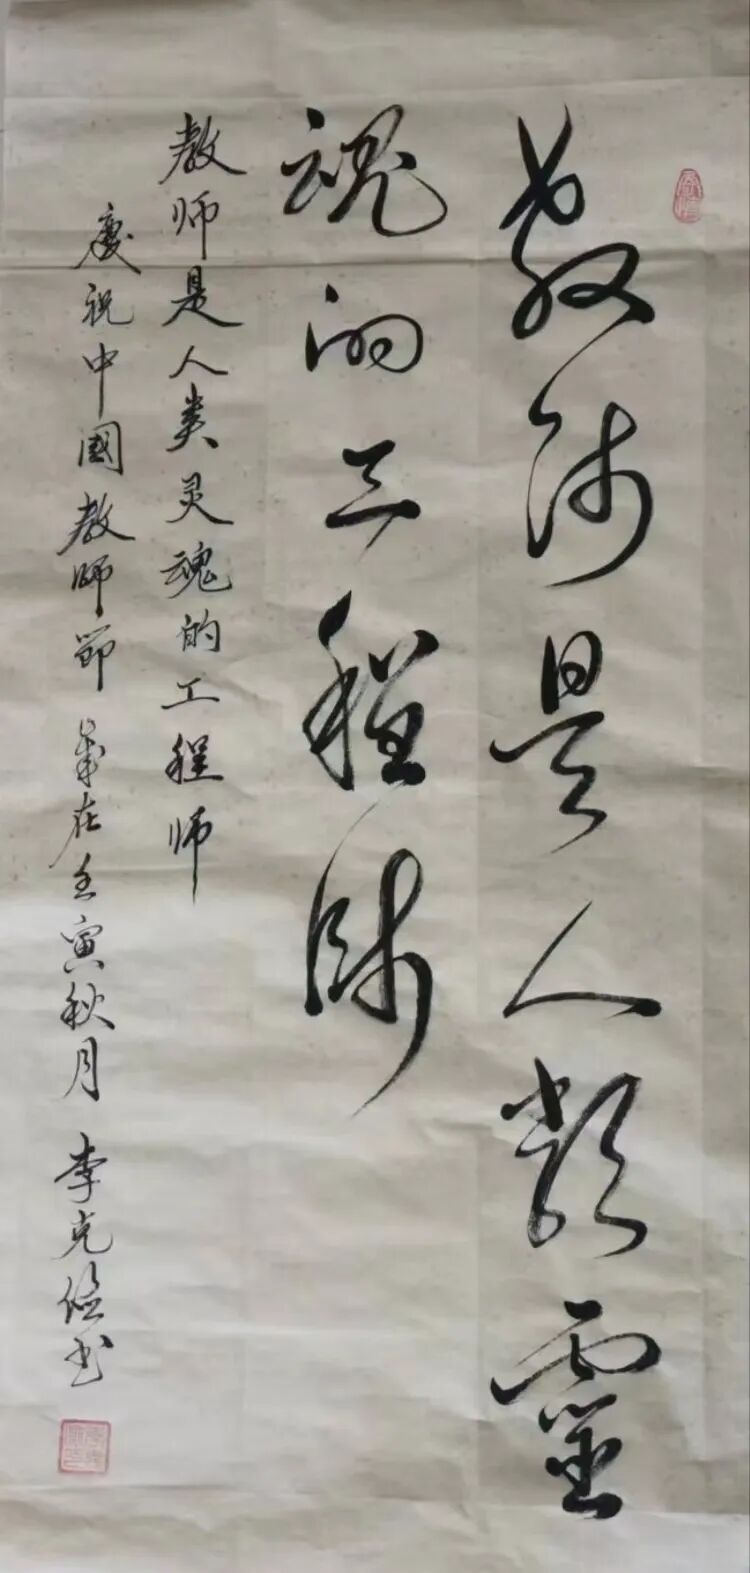 教师是人類靈
魂的工程师
教师是人类灵魂的工程师
慶祝中國教師節 歲在壬寅秋月 李克俭书